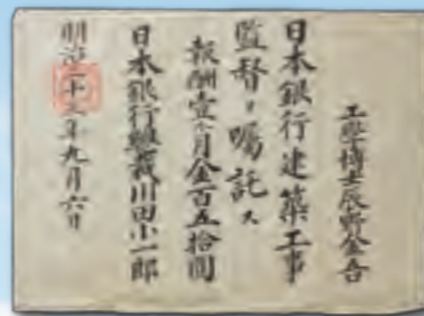 工學博士辰野金吾
日本銀行建築工事
監督ヲ嘱託ス
報酬壹ヶ月金百五拾圓
日本銀行總裁川田小一郎
明治二十三年九月六日